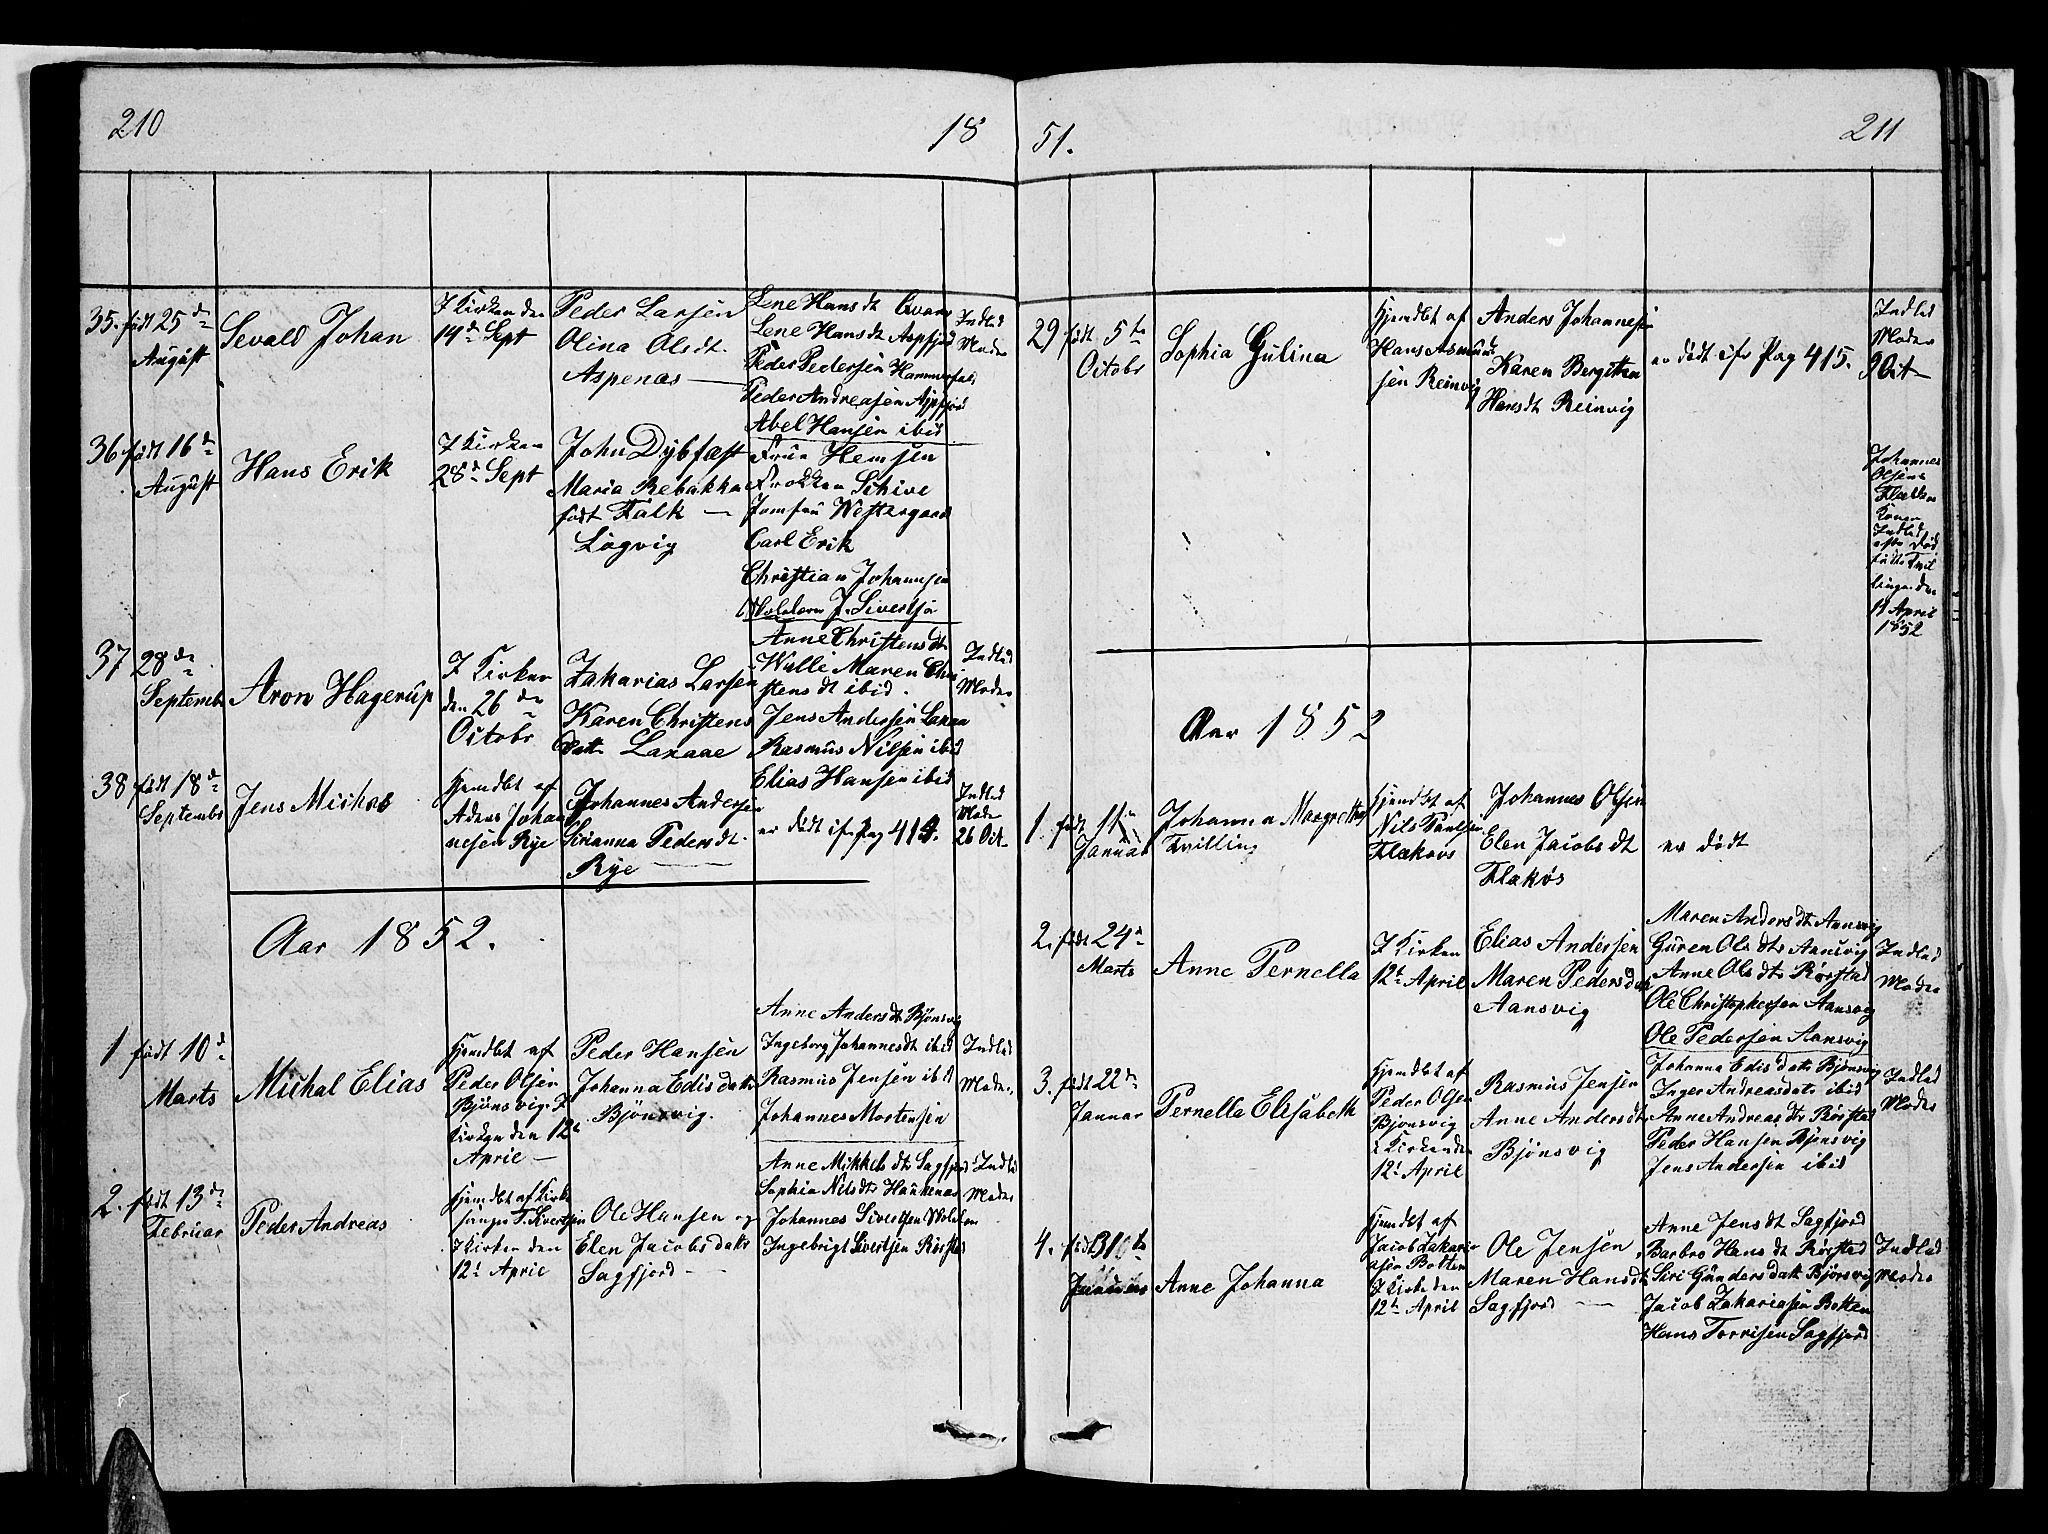 210
18
35. født 25de
August
Sevald Johan
I Kirken den
14de Sept
Peder Larsen
Olina Olsdt.
Aspenæs
Lene Hansdt
Lene Hansdt Aspfjord
Peder Pedersen Hammerfald
Peder Andreasen Aspfjord
Abel Hansen ibid
Indled
Moder
36 født 16de
August
Hans Erik
I Kirken
28de Sept
John Dybfæst
Maria Rebakka
født Falk
Løgvig
Frue Hemsen
Frøkken Schive
Jomfru Westergaard
Carl Erik
Christian Johannsen
J. Sivertsen
37 28de
Septembr
Aron Hagerup
I Kirken
den 26de
Octobr
Zakarias Larsen
Karen Christens
datt Laxaae
Anne Christensdt
Maren Chri
stensdt ibid.
Jens Andersen Laxaa
Rasmus Nilsen ibid
Elias Hansen ibid
Indled
Moder
38 født 18de
Septembr
Jens Michal
Hjemdbt af
Johan
nesen Rye
Johannes Andersen
Pedersdt.
Rye
er dødt Pag
Indled
Moder
26 Oct
Aar 1852.
1 født 10de
Marts
Michal Elias
Hjemdbt af
Peder Olsen
Bjönsvig. I
Kirken den 12te
April
Peder Hansen
Johanna Edisdatt
Bjönsvig.
Anne Andersdt Bjönsvig
Ingeborg Johannesdt ibid
Rasmus Jensen ibid
Johannes Mortensen
Indled
Moder.
2. født 13de
Februar
Peder Andreas
Hjemdbt af Kirke
sanger Sivertsen
I Kirken den
12te April
Ole Hansen og
Elen Jacobsdatt
Sagfjord
Anne Mikkelsdt Sagfjord
Sophia Nilsdtr Haukenæs
Johannes Sivertsen
Ingebrigt Sivertsen Rørstad
Indled
Moder
51.
211
29 født 5te
Octobr
Sophia Gulina
Hjemdbt af
Hans Asmund
sen Reinvig
Anders Johannesen
Karen Bergithe
Hansdt Reinvig
er dødt cfr Pag 415.
Indled
Moder
9 Oct
Johannes
Olsens
Kone
Indled
efter Død
fødte Tvil
linger den
11 April
1852
Aar 1852
1. født 11te
Januar
Johanna Margretha
Tvilling
Hjemdbt af
Nils Paulsen
Flakøs
Johannes Olsen
Elen Jacobsdt
Flakøs
er dødt
2. født 24de
Marts
Anne Pernella
I Kirken
12te April
Elias Andersen
Maren Pedersdatt
Aansvig
Maren Andersdt Aansvig
Guren Olsdtr Aansvig
Anne Olsdtr Rørstad
Ole Christophersen Aansvig
Ole Pedersen Aansvig
Indled
Moder
3. født 22de
Januar
Pernella Elisabeth
Hjemdbt af
Peder Olsen
Bjönsvig
i Kirken den
12te April
Rasmus Jensen
Anne Andersdt
Bjönsvig
Johanna Edisdatt Bjönsvig
Inger Andreasdatt ibid
Anne Andreasdtr Rørstad
Peder Hansen Bjönsvig
Jens Andersen ibid
Indled
Moder
4. født
Januar
Anne Johanna
Hjemdbt af
Jacob Zakari
asen Botten
I Kirke den
12te April
Ole Jensen
Maren Hansdt
Sagfjord
Anne Jensdt Sagfjord
Barbro Hansdt Rørstad
Siri Gundersdatt Bjönsvig
Jacob Zakariasen Botten
Hans Torrisen Sagfjord
Indled
Moder